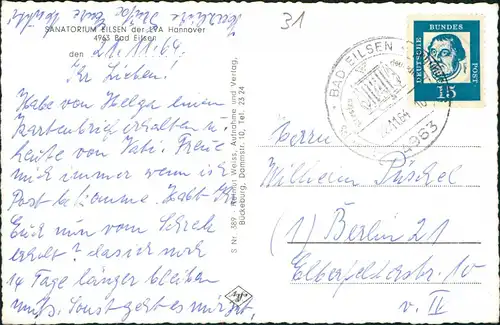 Herzliche Grüße Eure
31
SANATORIUM EILSEN der LVA Hannover
4963 Bad Eilsen
den 21.11.64.
Ihr Lieben!
Habe von Helga einen
Kartenbrief erhalten u.
heute von Tati. Freue
mich immer wenn ich
Post bekomme. Habt Ihr
Euch nun vom Schreck
erholt? dass ich noch
14 Tage länger bleiben
muß. Sonst geht es mir gut,
S Nr. 389 Helmut Weiss, Aufnahme und Verlag,
Bückeburg, Dammstr. 10, Tel. 23 24
BAD EILSEN
.11.64 10
4963
DEUTSCHE BUNDESPOST
15
Herrn
Wilhelm Püschel
(1) Berlin 21
Elberfelderstr. 10
v. II